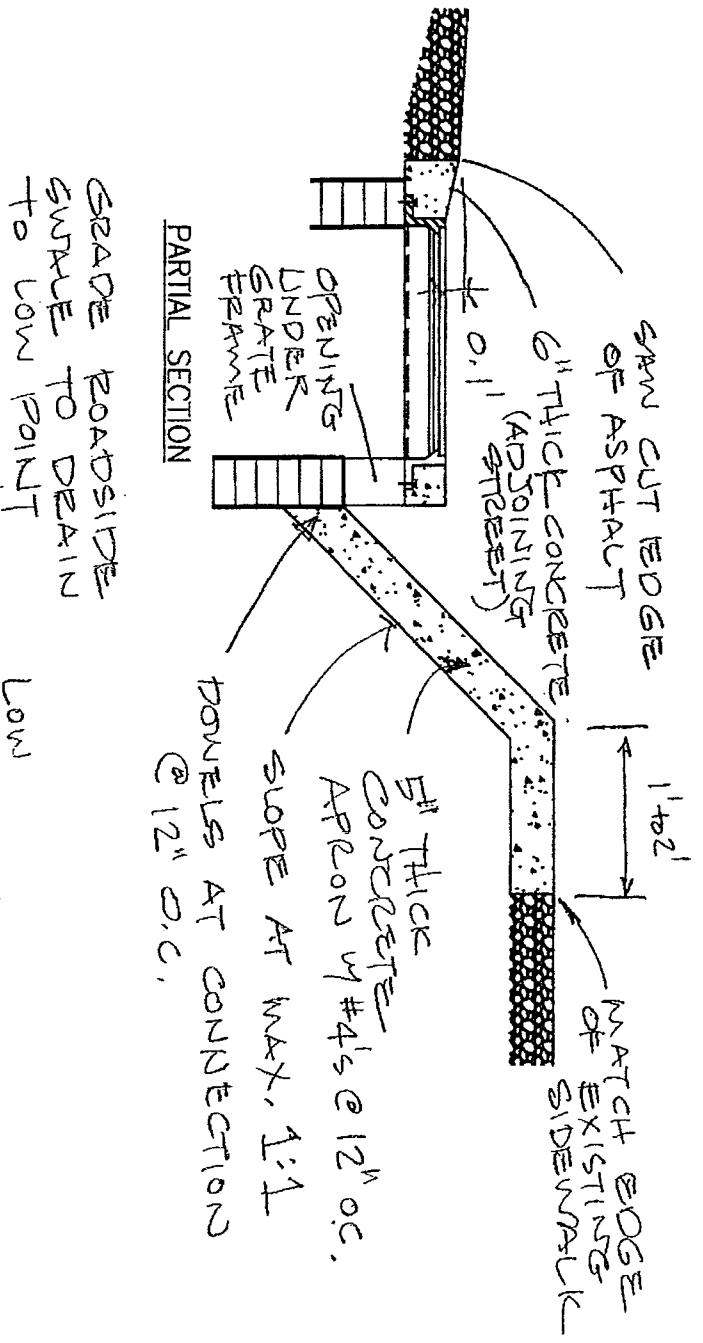 SAW CUT EDGE
OF ASPHALT
6" THICK CONCRETE
(ADJOINING
STREET)
0.1'
1' to 2'
MATCH EDGE
OF EXISTING
SIDEWALK
OPENING
UNDER
GRATE
FRAME
5" THICK
CONCRETE
APRON W/ #4's @ 12" O.C.
SLOPE AT MAX. 1:1
DOWELS AT CONNECTION
@ 12" O.C.
PARTIAL SECTION
GRADE ROADSIDE
SWALE TO DRAIN
TO LOW POINT
LOW